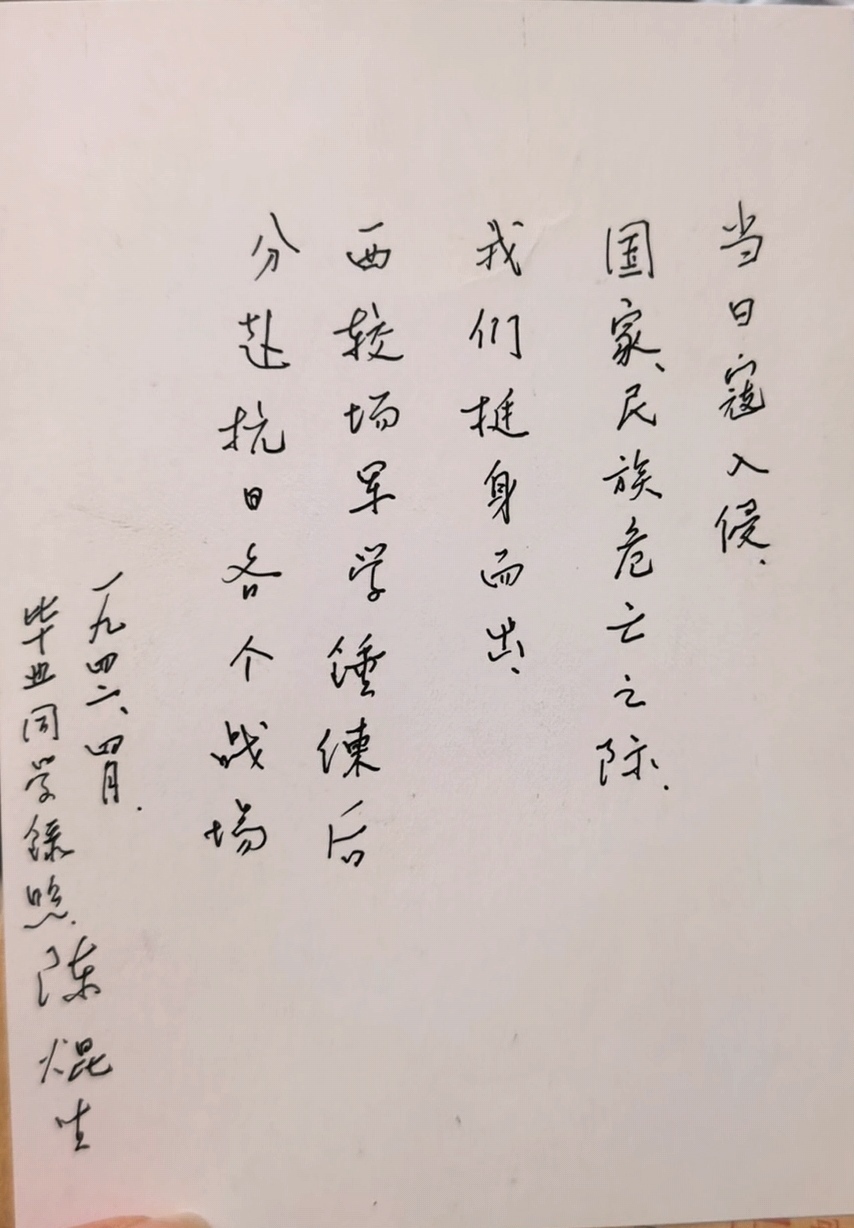 当日寇入侵.
国家、民族危亡之际.
我们挺身而出、
西较场军学锤练后
分赴抗日各个战场
一九四六、四月.
毕业同学录照.陈焜生